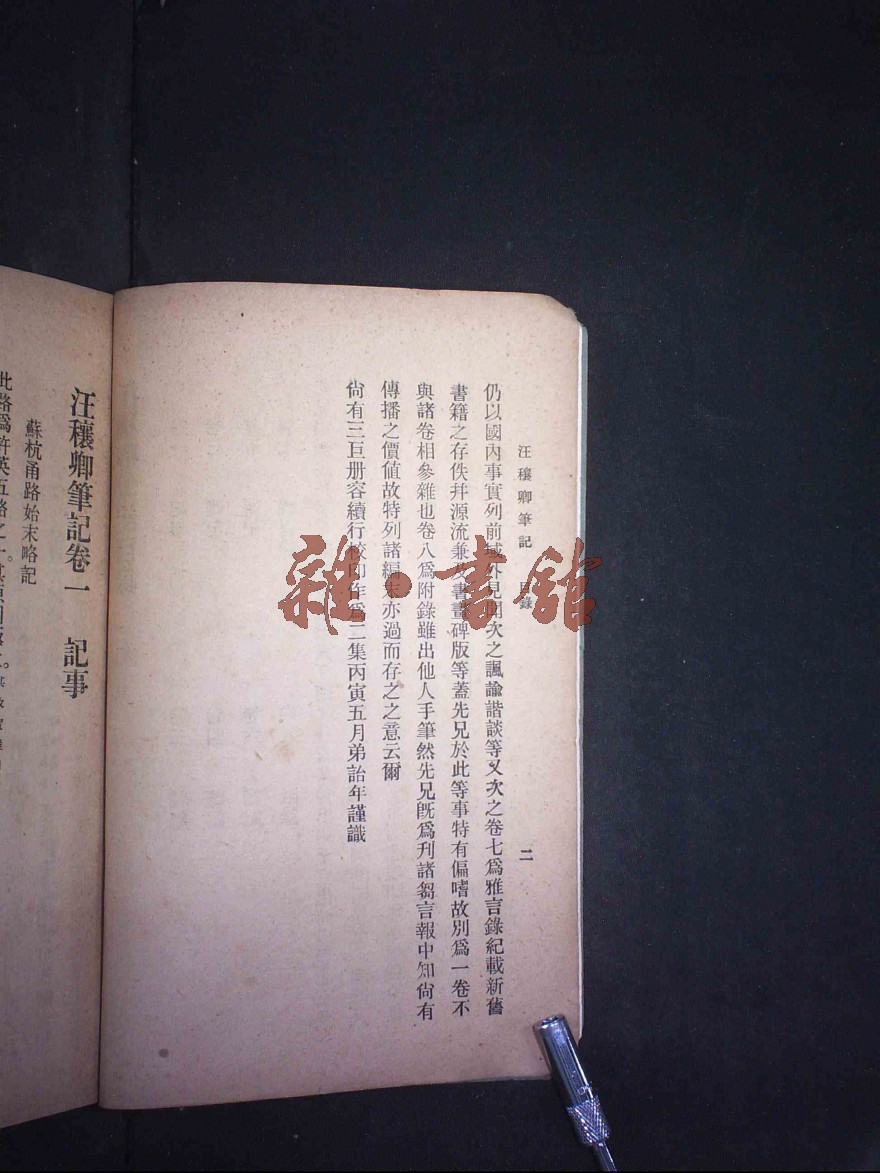 汪穰卿筆記 目錄 二
仍以國內事實列前域外見聞次之諷諭諧談等又次之卷七爲雅言錄紀載新舊
書籍之存佚幷源流兼及書畫碑版等蓋先兄於此等事特有偏嗜故別爲一卷不
與諸卷相參雜也卷八爲附錄雖出他人手筆然先兄旣爲刋諸芻言報中知尙有
傳播之價値故特列諸編末亦過而存之之意云爾
尙有三巨册容續行校印作爲二集丙寅五月弟詒年謹識
汪穰卿筆記卷一 記事
蘇杭甬路始末略記
此路爲許英五路之一
雜·書館